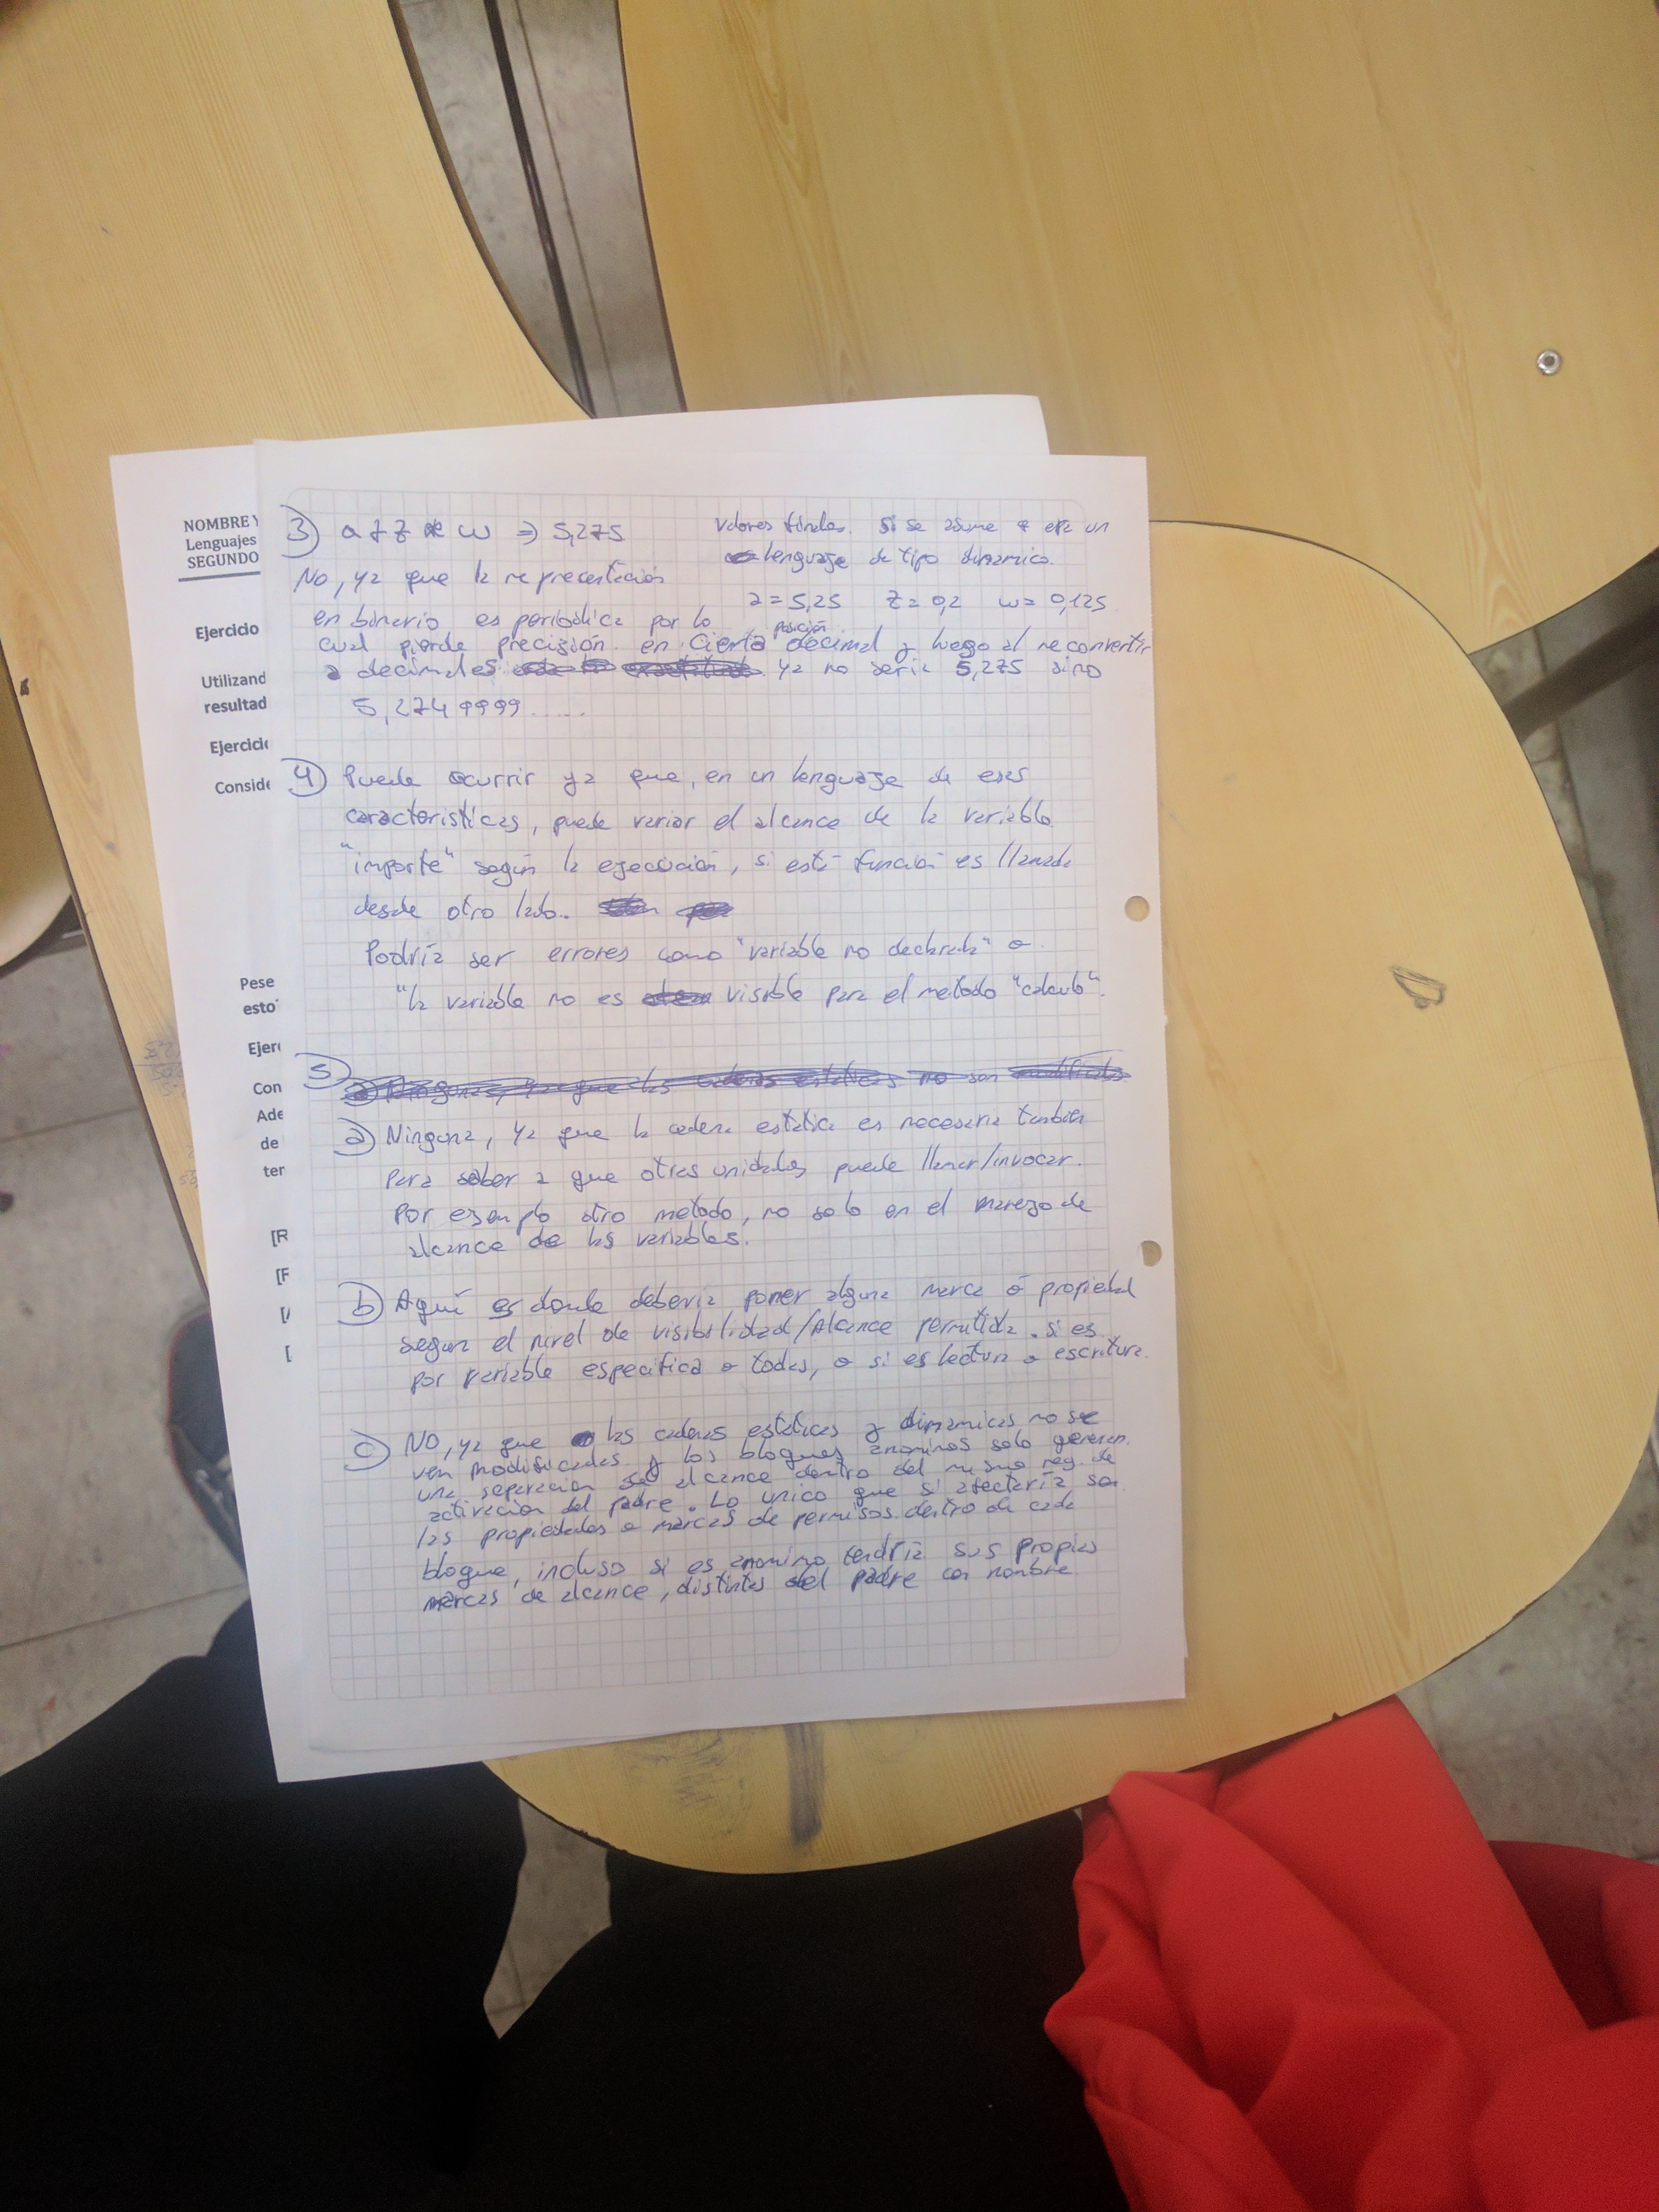 NOMBRE Y
Lenguajes
SEGUNDO
Ejercicio
Utilizand
resultad
Ejercici
Conside
Pese
esto
Ejer
Con
Ade
de
ter
[R
[F
[
[
3) a + z * w => 5,275
valores finales. si se asume q era un
lenguaje de tipo dinamico.
a = 5,25 z = 0,2 w = 0,125
No, ya que la representación
en binario es periódica por lo
cual pierde precisión en cierta posición decimal y luego al reconvertir
a decimales ya no seria 5,275 sino
5,2749999.....
4) Puede ocurrir ya que, en un lenguaje de esas
caracteristicas, puede variar el alcance de la variable
"importe" según la ejecución, si está función es llamada
desde otro lado.
Podría ser errores como "variable no declarada" o
"la variable no es visible para el metodo "calculo".
5)
a) Ninguna, ya que la cadena estatica es necesaria tambien
para saber a que otras unidades puede llamar/invocar.
Por ejemplo otro metodo, no solo en el manejo de
alcance de las variables.
b) Aquí es donde deberia poner alguna marca ó propiedad
segun el nivel de visibilidad/Alcance permitida. si es
por variable especifica o todas, o si es lectura o escritura.
c) NO, ya que las cadenas estaticas y dinamicas no se
ven modificadas y los bloques anonimos solo generan
una separacion del alcance dentro del mismo reg. de
activacion del padre. Lo unico que si afectaría son
las propiedades o marcas de permisos dentro de cada
bloque, incluso si es anonimo tendría sus propias
marcas de alcance, distintas del padre con nombre.